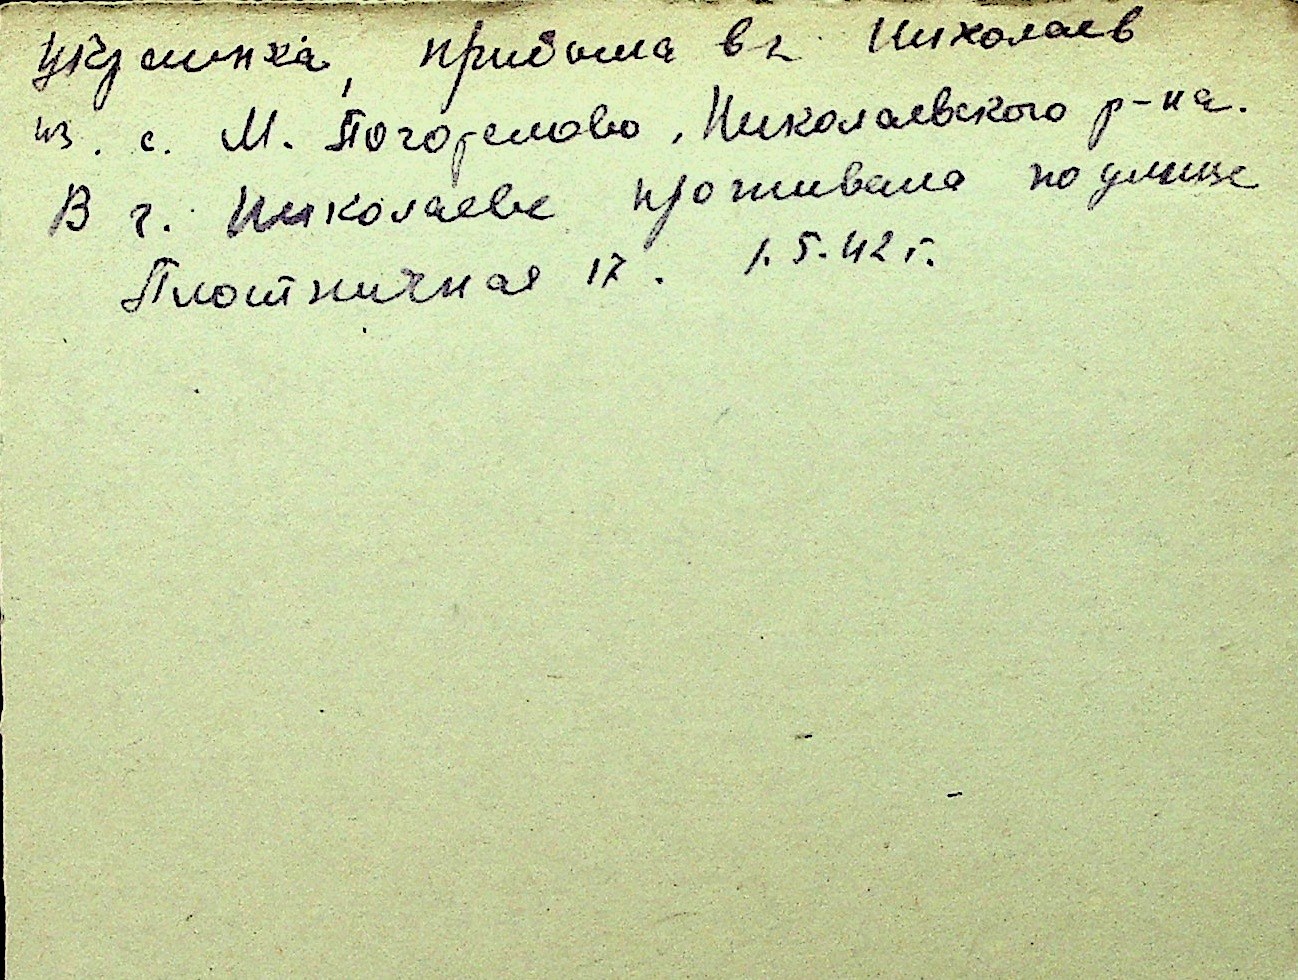 украинка, прибыла в г. Николаев
из. с. М. Погорелово, Николаевского р-на.
В г. Николаеве проживала по улице
Плотничная 17. 1.5.42 г.